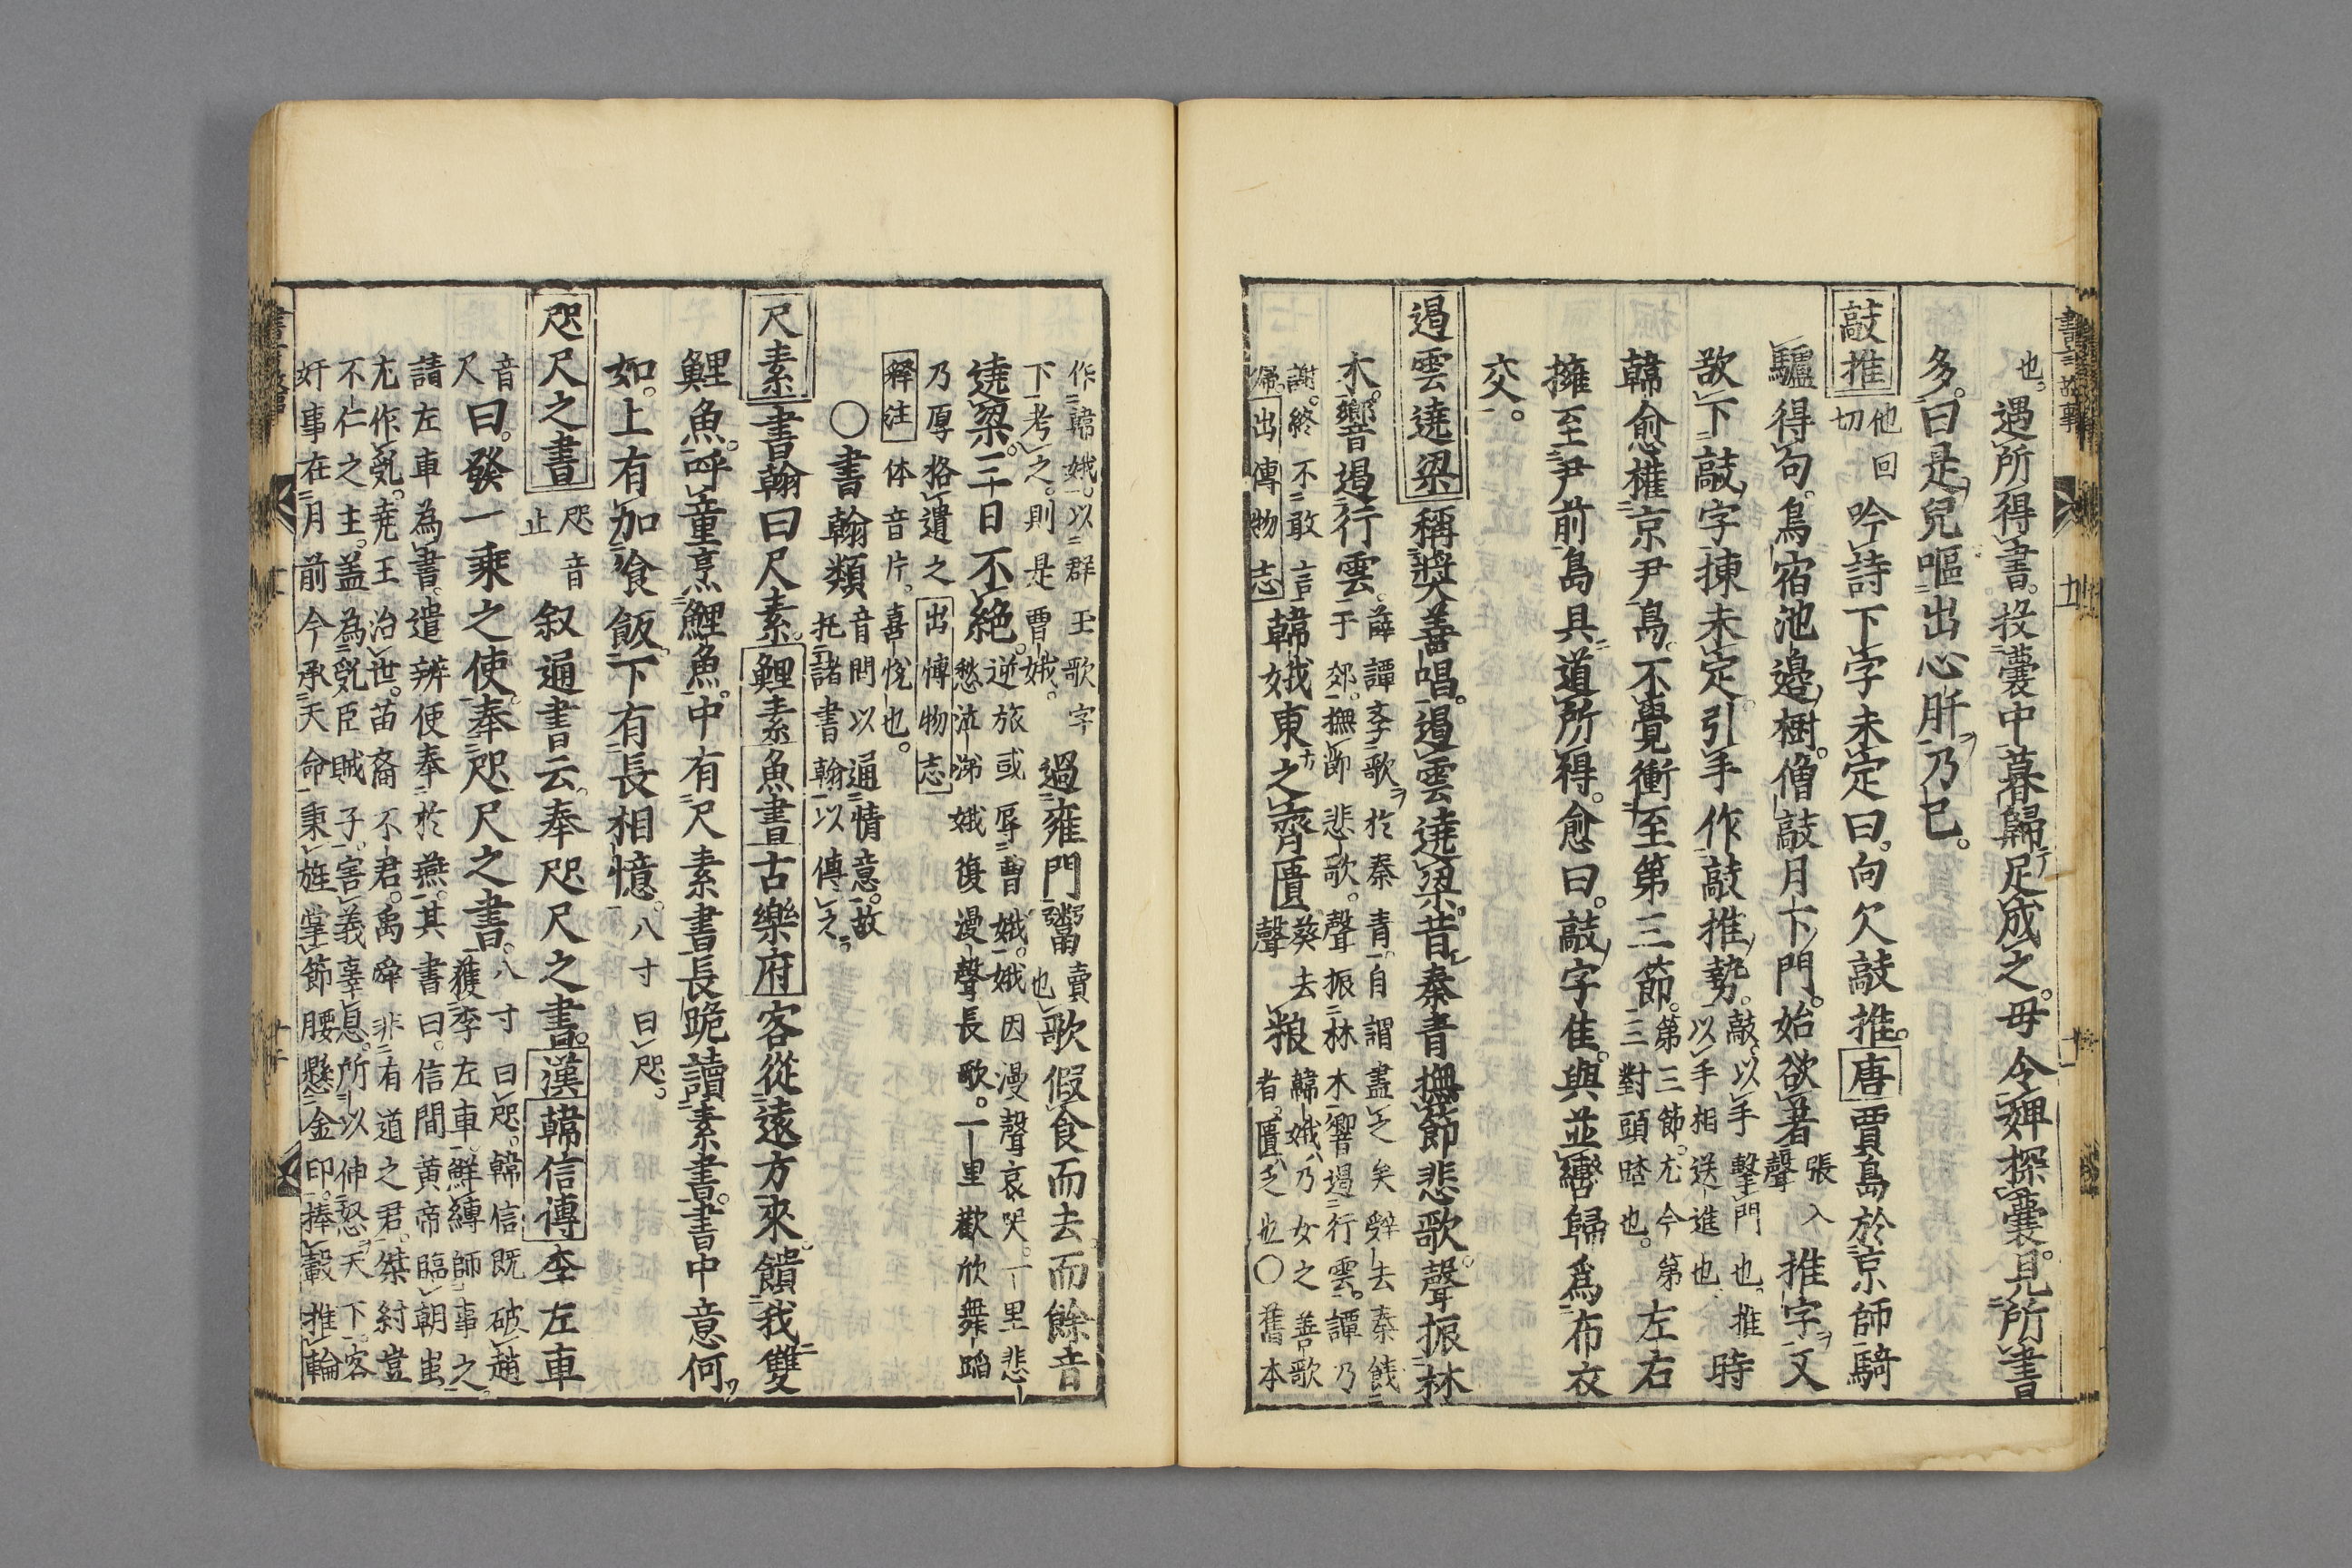 也。遇所得書。投囊中暮歸足成之。母令婢探囊。見所書
多。曰是兒嘔出心肝乃已。
敲推
他回
切
吟詩下字未定曰。向欠敲推。唐賈島於京師騎
驢得句。鳥宿池邊樹。僧敲月下門。始欲著
張入
聲
推字又
敲下敲字。揀未定。引手作敲推勢。
敲。以手擊門也。推
以手相送進也
時
韓愈權京尹島。不覺衝至第三節。
第三節。尤今第
三對頭踏也。
左右
擁至尹前島具道所得。愈曰。敲字佳。與並轡歸為布衣
交。
遏雲遶梁
稱獎善唱。遏雲遶梁。昔秦青撫節悲歌。聲振林
木。響遏行雲。
薛譚李歌於秦青。自謂盡之矣。辭去秦餞
于郊。撫節悲歌。聲振林木響遏行雲。譚乃
謝。終不敢言
歸。出傳物志
韓娥東之齊匱
葵去
聲
粮
韓娥乃女之善歌
者。匱乏也〇舊本
作韓娥。以群玉歌字
下考之。則是曹娥。
過雍門鬻
賣
也
歌假食而去。而餘音
遶梁。三日不絕。
逆旅或辱曹娥。娥因漫聲哀哭。一里悲
愁泣涕娥復漫聲長歌。一里歡欣舞蹈
乃厚賂遺之出博物志
释注体音片。喜悅也。
〇書翰類
音問以通情意。故
托諸書翰以傳之。
尺素
書翰曰尺素。鯉素魚書古樂府客從遠方來。饋我雙
鯉魚。呼童烹鯉魚。中有尺素書。長跪讀素書。書中意何
如。上有加飡飯。下有長相憶。
八寸曰咫。
咫尺之書
咫音
止
叙通書云。奉咫尺之書。漢韓信傳李左車
音
尺
曰。發一乘之使。奉咫尺之書。
八寸曰咫。韓信既破趙
獲李左車。鮮縛師事之。
請左車為書。遣辨使奉於燕。其書曰。信間黄帝臨朝蚩
尤作亂。堯王治世。苗裔不君。禹舜非有道之君。桀紂豈
不仁之主。盖為亂臣賊子。害義辜恩。所以伸怒天下。客
奸事在月前今承天命。秉旌掌節腰懸金印。捧轂推輪